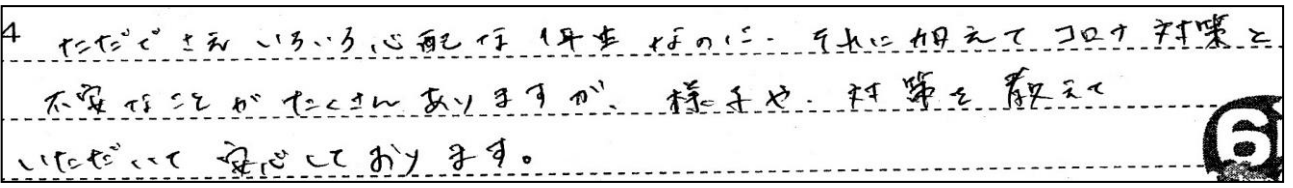 4 ただでさえいろいろ心配な1年生なのに、それに加えてコロナ対策と
不安なことがたくさんありますが、様子や、対策を教えて
いただいて安心しております。
6